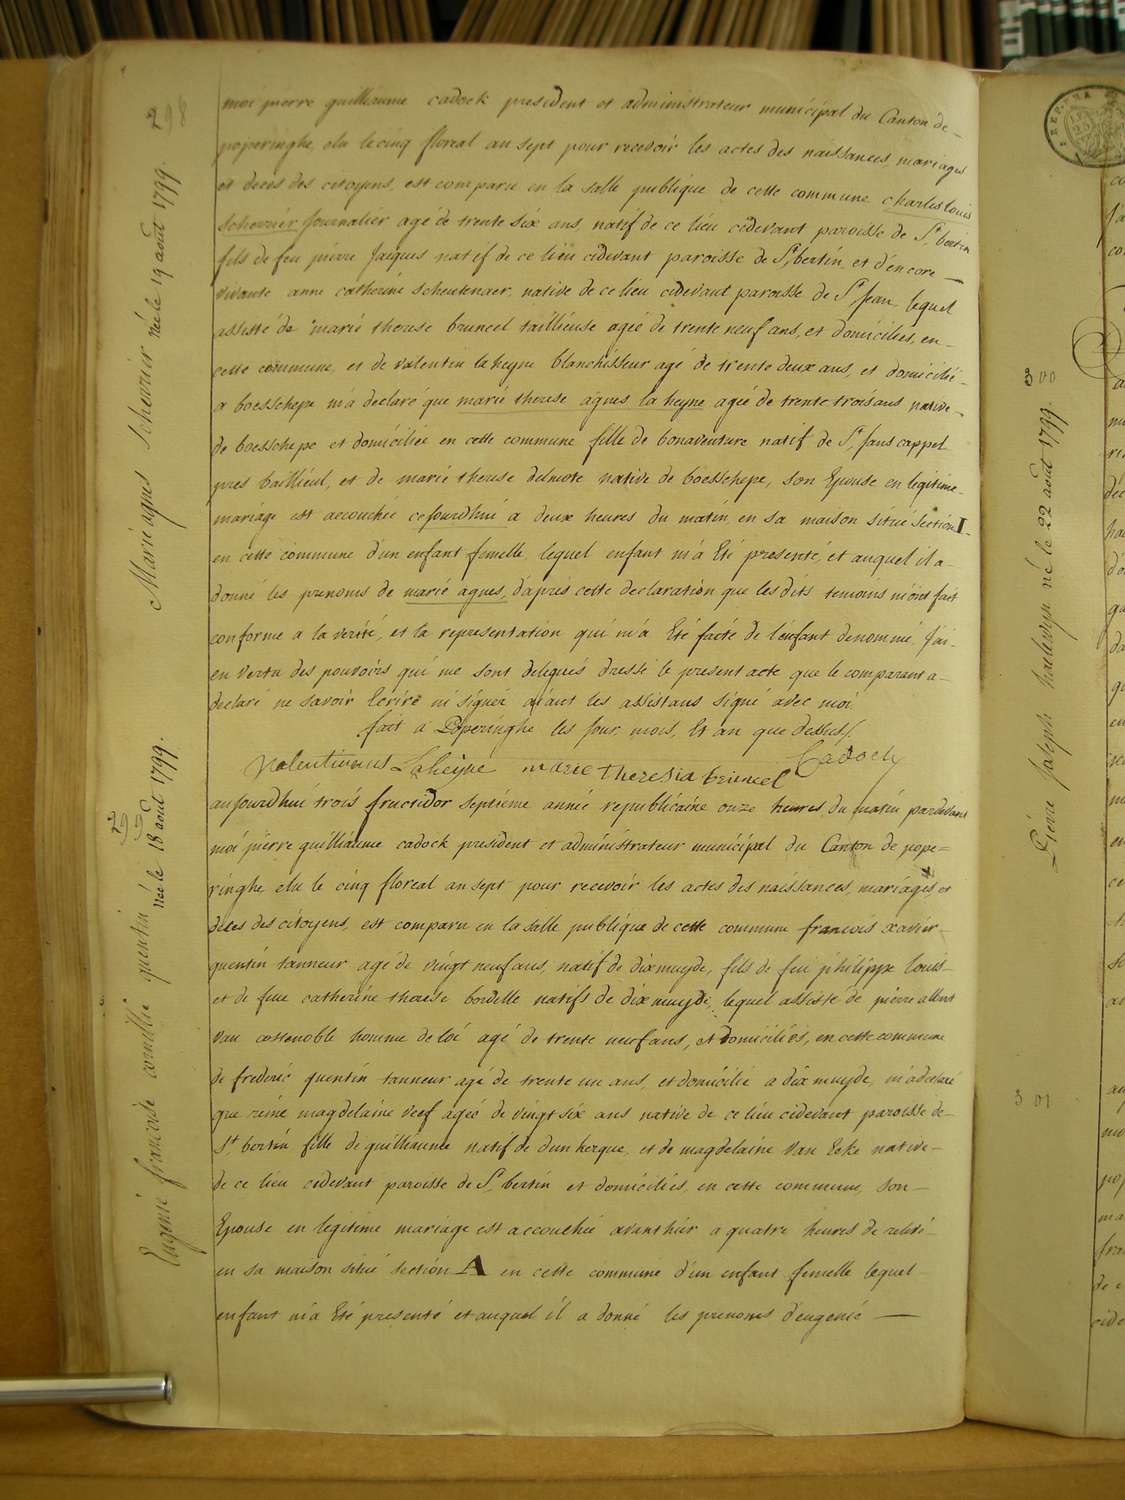 298
Marie agnes Schevrier née le 19 août 1799.
moi pierre guilliaume cadock president et administrateur municipal du Canton de
poperinghe elu le cinq floreal an sept pour recevoir les actes des naissances, mariages
et deces des citoyens, est comparu en la salle publique de cette commune charles louis
schevrier Journalier agé de trente six ans, natif de ce lieu cidevant paroisse de St bertin
fils de feu pierre Jacques natif de ce lieu cidevant paroisse de St bertin, et d'encore
vivante anne catherine scheutenaer, native de ce lieu cidevant paroisse de St Jean, lequel
assisté de marie therese bruneel tailliéuse agée de trente neuf ans, et domiciliés, en
cette commune, et de valentin laheyne blanchisseur agé de trente deux ans, et domicilié
a boesschepe m'a declaré que marie therese agnes la heyne agée de trente trois ans native
de boesschepe et domiciliée en cette commune fille de bonaventure natif de St Jans cappel
pres bailliéul, et de marie therese delmote native de boesschepe, son Epouse en legitime
mariage est accouchée cejourdhui a deux heures du matin en sa maison situé section I
en cette commune d'un enfant femelle, lequel enfant m'a Eté presenté, et auquel il a
donné les prenoms de marie agnes, d'après cette declaration que les dits temoins m'ont fait
conforme a la verité, et la representation qui m'a Eté faite de l'enfant denommé, J'ai
en vertu des pouvoirs qui me sont delegués dressé le present acte que le comparant a
declaré ne savoir Ecrire ni signer aiant les assistans signé avec moi
fait a Poperinghe les Jour, mois, Et an que dessus/.
Valentinus Laheijne marie theresia bruneel Cadock
299
Eugenie francoise cornillie quentin née le 18 août 1799.
aujourdhui trois fructidor septième année republicaine onze heures du matin pardevant
moi pierre guilliaume cadock president et administrateur municipal du Canton de pope=
ringhe elu le cinq floreal an sept pour recevoir les actes des naissances, mariages, et
deces des citoyens, est comparu en la salle publique de cette commune francois xavier
quentin tanneur agé de vingt neuf ans, natif de dixmuyde, fils de feu philippe louis
et de feue catherine therese bordelle natifs de dixmuyde, lequel assisté de pierre albert
van costenoble homme de loi agé de trente neuf ans, et domiciliés, en cette commune
de frederic quentin tanneur agé de trente un ans, et domicilié a dixmuyde, m'a declaré
que reine magdelaine neef ageé de vingt six ans native de ce lieu cidevant paroisse de
St bertin fille de guilliaume natif de dunkerque, et de magdelaine van Eeke native
de ce lieu cidevant paroisse de St bertin et domiciliés, en cette commune, son
Epouse en legitime mariage est accouchée avanthier a quatre heures de relevé
en sa maison situé section A en cette commune d'un enfant femelle lequel
enfant m'a Eté presenté et auquel il a donné les prenoms d'eugenie
300
Pierre Joseph né le 22 août 1799.
301